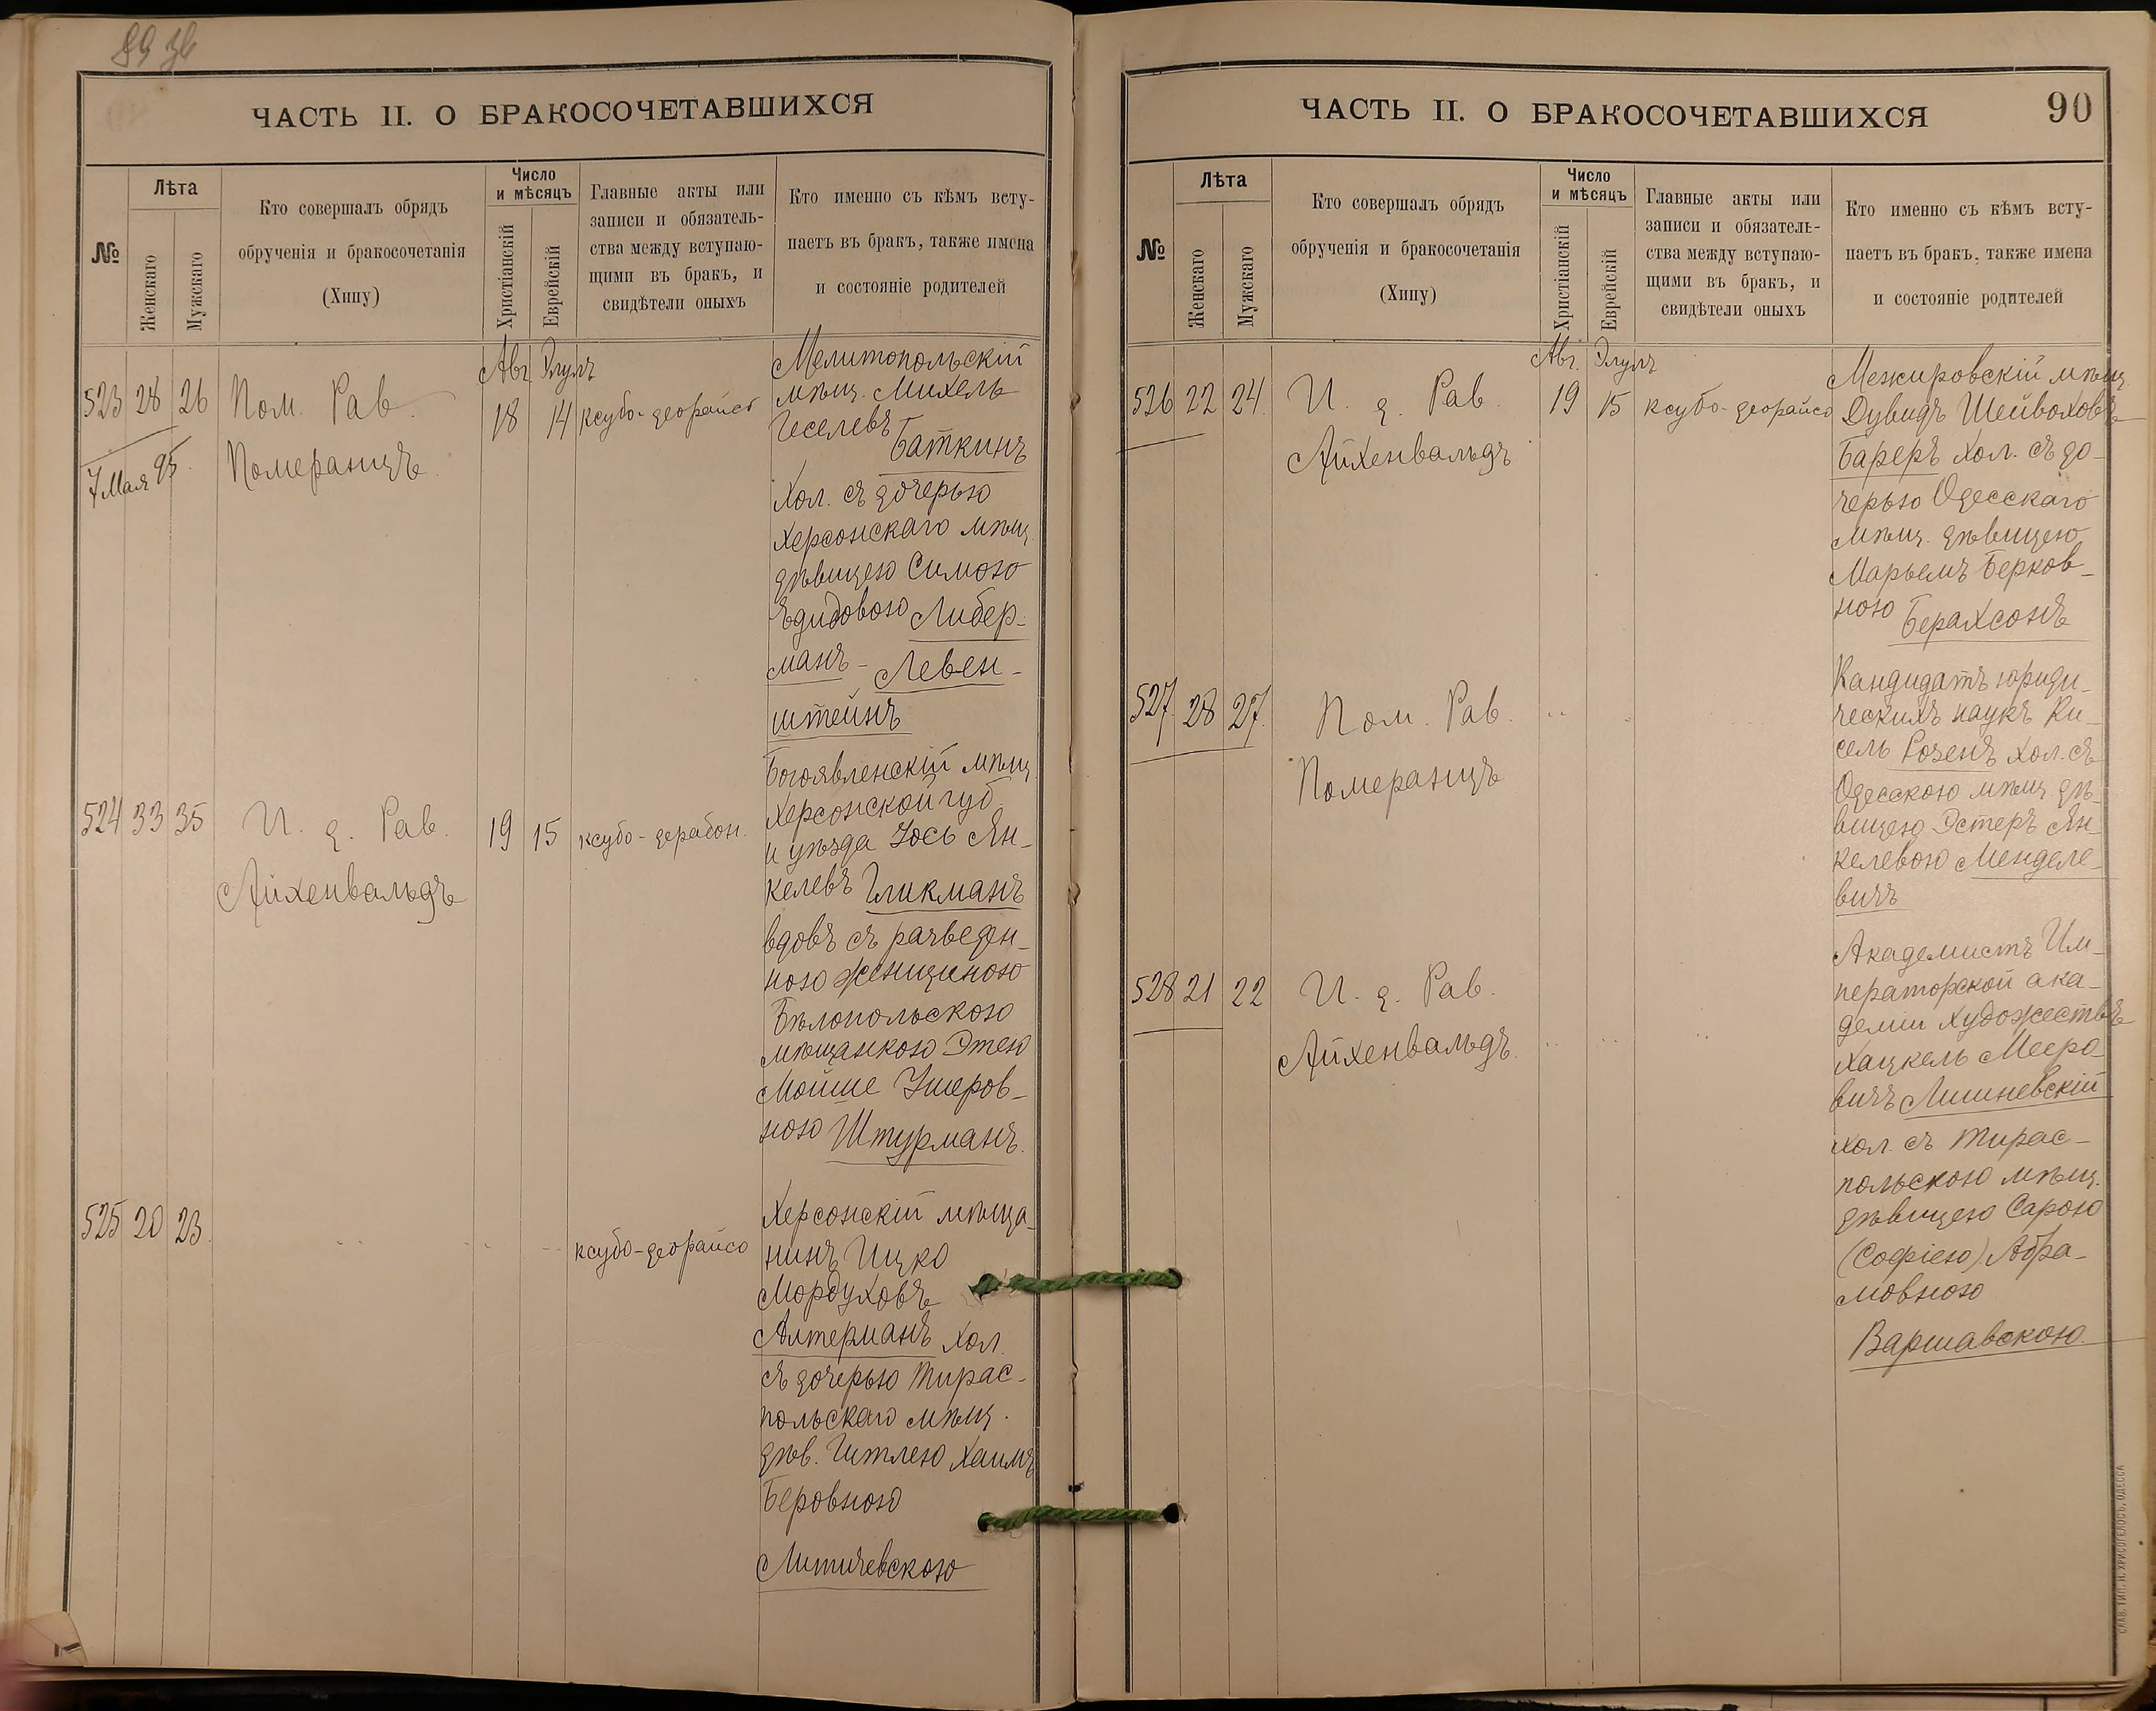 89 зв
ЧАСТЬ II. О БРАКОСОЧЕТАВШИХСЯ
№
Лѣта
Женскаго
Мужскаго
Кто совершалъ обрядъ
обрученія и бракосочетанія
(Хипу)
Число
и мѣсяцъ
Христіанскій
Еврейскій
Главные акты или
записи и обязатель-
ства между вступаю-
щими въ бракъ, и
свидѣтели оныхъ
Кто именно съ кѣмъ всту-
паетъ въ бракъ, также имена
и состояніе родителей
523 28 26
7 Мая 95
Пом. Рав.
Померанцъ
Авг. Элулъ
18 14
ксубо-деорайсо
Мелитопольскій
мѣщ. Михель
Геселевъ
Баткинъ
хол. съ дочерью
Херсонскаго мѣщ.
дѣвицею Симою
Либер-
манъ-Левен-
штейнъ
524 33 35
И. д. Рав.
Айхенвальдъ
19 15
ксубо-дерабон.
Богоявленскій мѣщ.
Херсонской губ.
и уѣзда Іось Ян-
келевъ Гликманъ
вдовъ съ разведен-
ною женщиною
Бѣлопольскою
мѣщанкою Этею
Мойше Ушеров-
ною Штурманъ.
525 20 23.
ксубо-деорайсо
Херсонскій мѣща-
нинъ Ицко
Мордуховъ
Алтерманъ хол.
съ дочерью Тирас-
польскаго мѣщ.
дѣв. Гитлею Хаимъ
Беровною
Литичевскою
ЧАСТЬ II. О БРАКОСОЧЕТАВШИХСЯ
90
№
Лѣта
Женскаго
Мужскаго
Кто совершалъ обрядъ
обрученія и бракосочетанія
(Хипу)
Число
и мѣсяцъ
Христіанскій
Еврейскій
Главные акты или
записи и обязатель-
ства между вступаю-
щими въ бракъ, и
свидѣтели оныхъ
Кто именно съ кѣмъ всту-
паетъ въ бракъ, также имена
и состояніе родителей
526 22 24.
И. д. Рав.
Айхенвальдъ
Авг. Элулъ
19 15
ксубо-деорайсо
Межировскій мѣщ.
Дувидъ Шейвоховъ
Бареръ хол. съ до-
черью Одесскаго
мѣщ. дѣвицею
Марьемъ Берков-
ною Берахсонъ
527. 28 27.
Пом. Рав.
Померанцъ
Кандидатъ юриди-
ческихъ наукъ Ки-
сель Розенъ хол. съ
Одесскою мѣщ. дѣ-
вицею Эстеръ Ян-
келевою Менделе-
вичъ
528 21 22
И. д. Рав.
Айхенвальдъ.
Академистъ Им-
ператорской ака-
деміи художествъ
Хацкель Мееро-
вичъ Лишневскій
хол. съ Тирас-
польскою мѣщ.
дѣвицею Сарою
(Софіею) Абра-
мовною
Варшавскою.
СЛАВ. ТИП. Н. ХРИСОГЕЛОСЪ, ОДЕССА